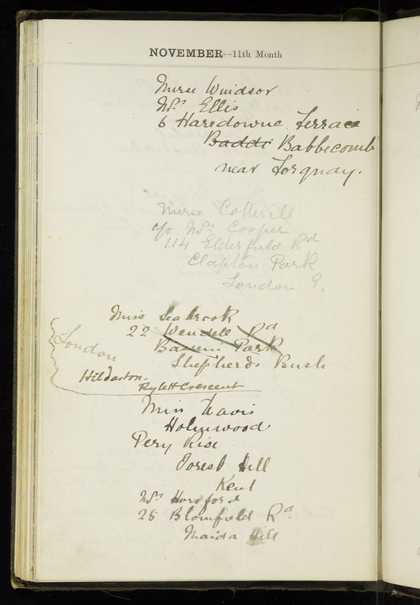 NOVEMBER—11th Month
Nurse Windsor
Mrs Ellis
6 Haredowne Terrace
Badds Babbicomb
near Torquay.
Nurse Cotterill
c/o Mrs Cooper
114 Elderfield Rd
Clapton Park
London E.
Miss Seabrook
22 Rd
Park
Shepherds Bush
London
Hilderton.
Rylett Crescent
Miss Travis
Holmwood
Pery Rise
Forest Hill
Kent
Mrs Horsford
28 Blomfield Rd
Maida Hill